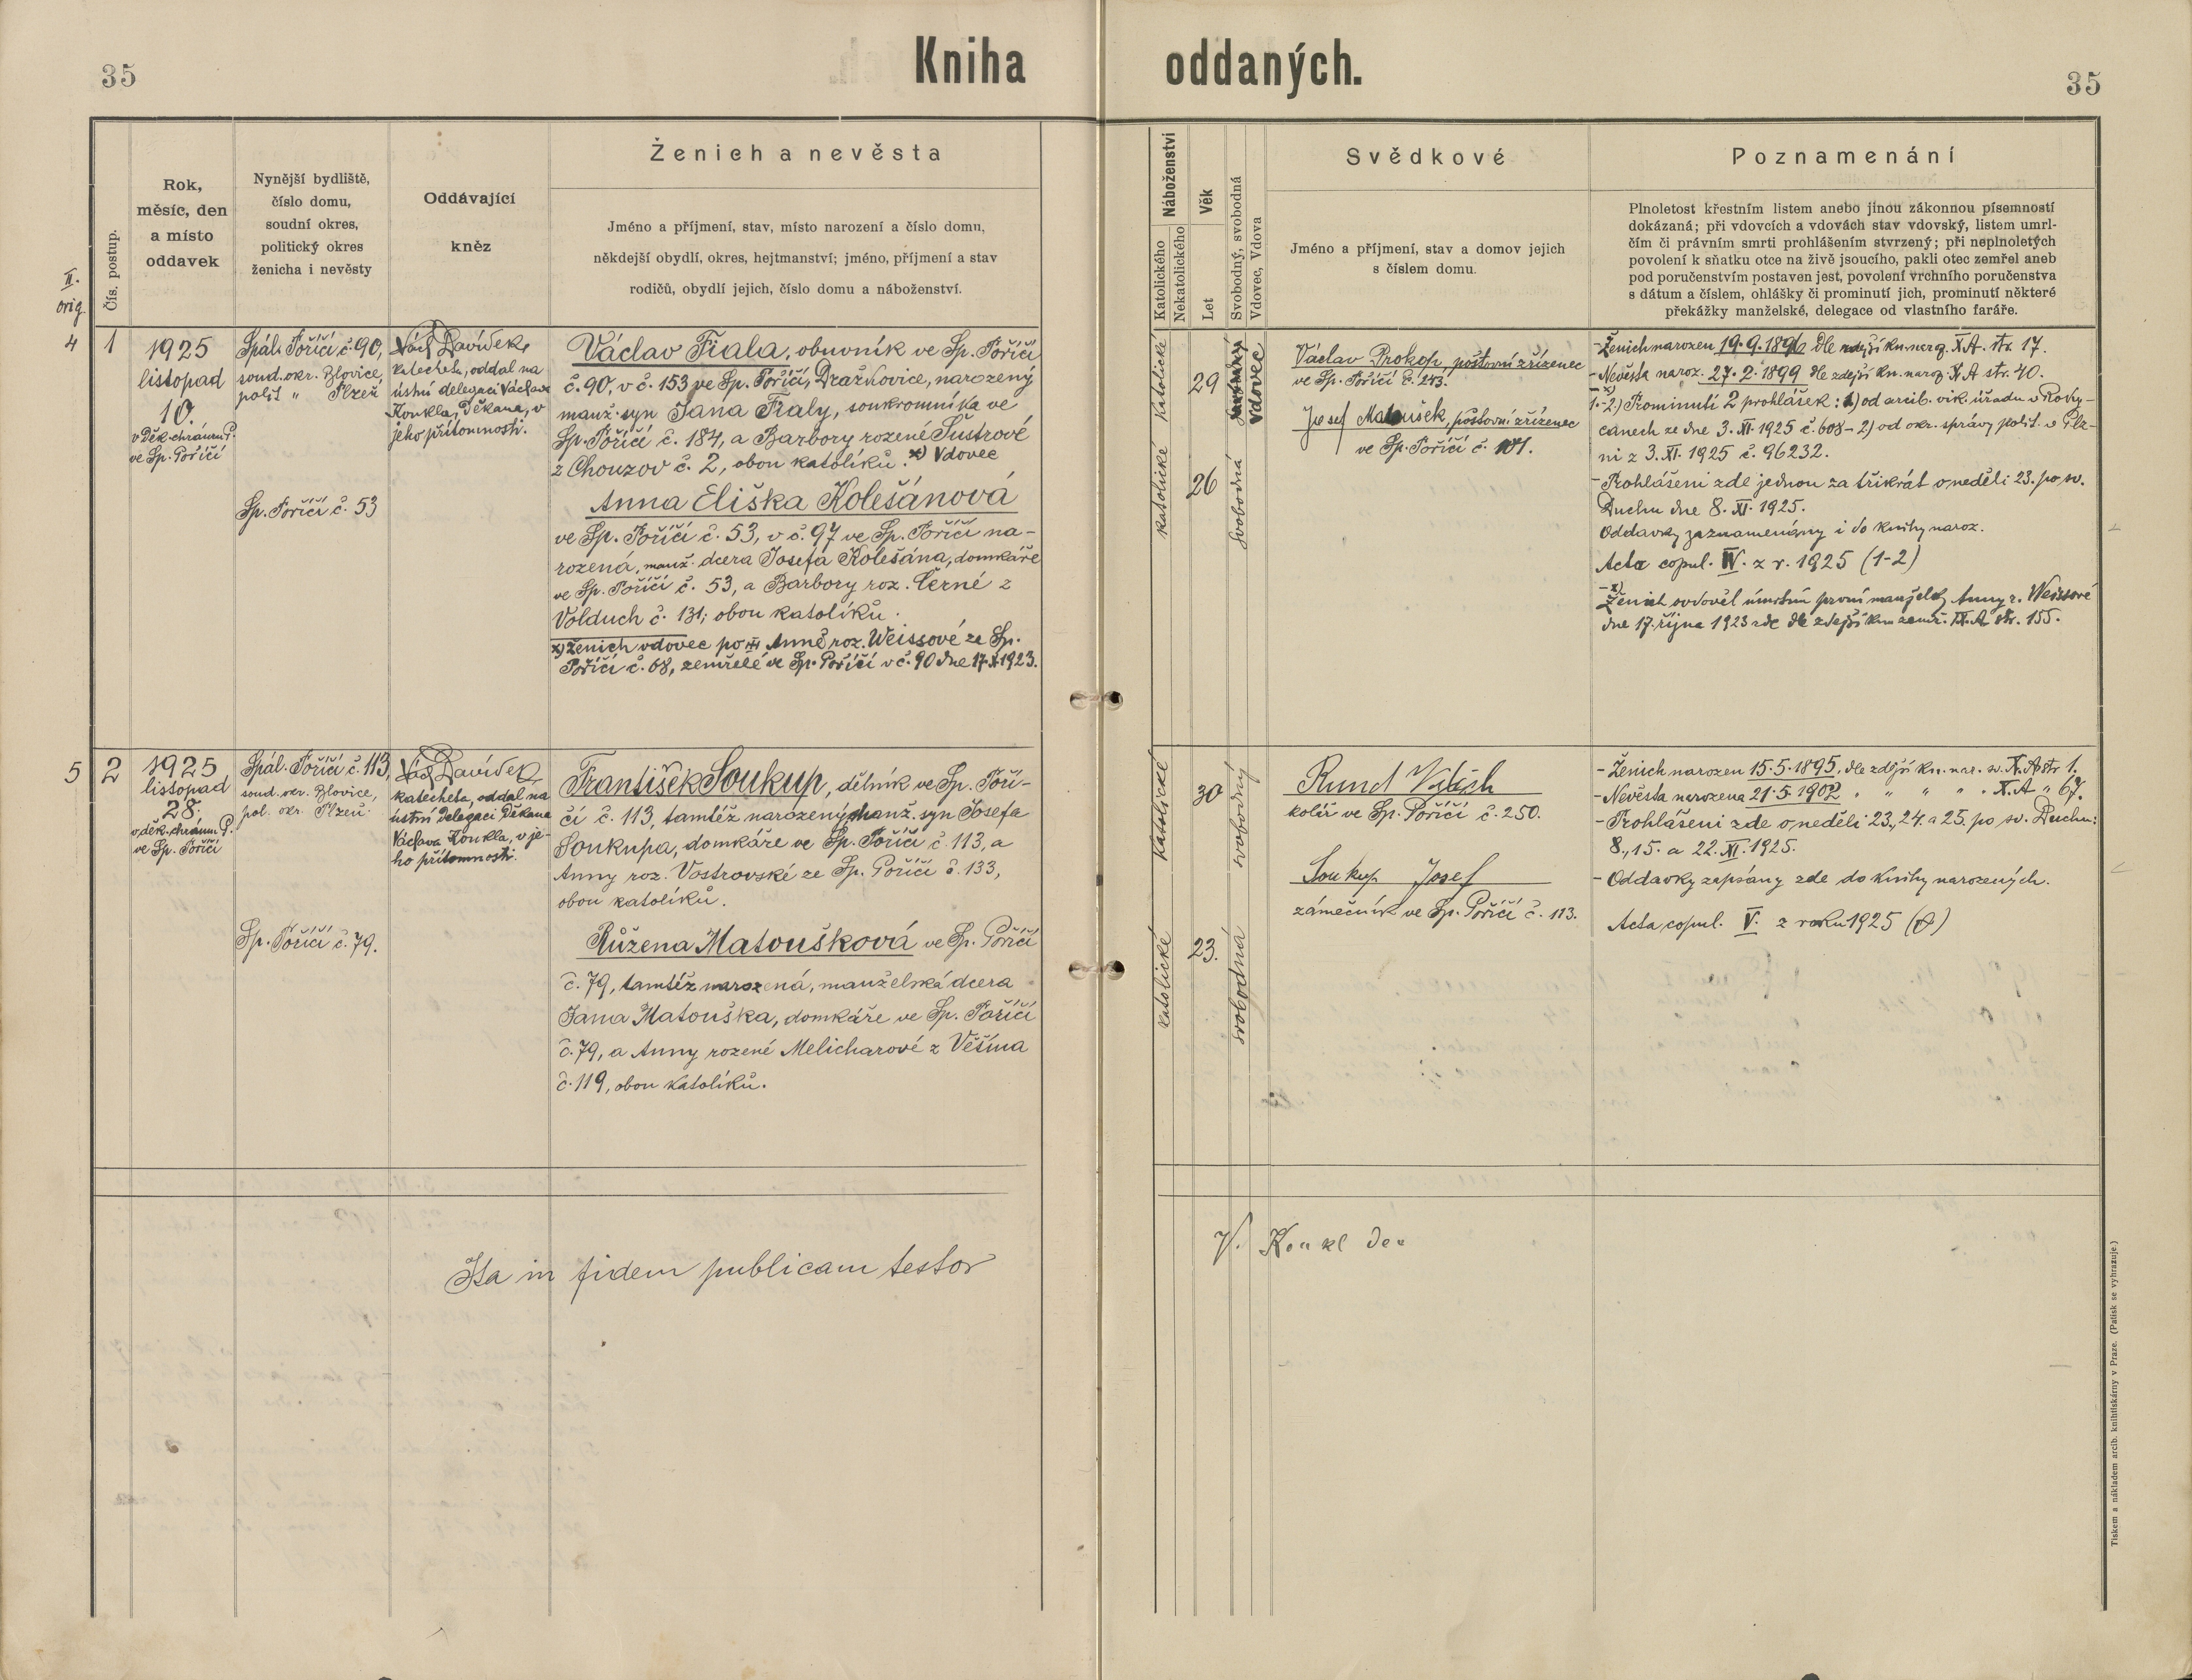 35
Kniha oddaných.
35
Čís. postup.
Rok,
měsíc, den
a místo
oddavek
Nynější bydliště,
číslo domu,
soudní okres,
politický okres
ženicha i nevěsty
Oddávající
kněz
Ženich a nevěsta
Jméno a příjmení, stav, místo narození a číslo domu,
někdejší obydlí, okres, hejtmanství; jméno, příjmení a stav
rodičů, obydlí jejich, číslo domu a náboženství.
Náboženství
Katolického
Nekatolického
Věk
Let
Svobodný, svobodná
Vdovec, Vdova
Svědkové
Jméno a příjmení, stav a domov jejich
s číslem domu.
Poznamenání
Plnoletost křestním listem anebo jinou zákonnou písemností
dokázaná; při vdovcích a vdovách stav vdovský, listem umrl-
čím či právním smrti prohlášením stvrzený; při neplnoletých
povolení k sňatku otce na živě jsoucího, pakli otec zemřel aneb
pod poručenstvím postaven jest, povolení vrchního poručenstva
s dátum a číslem, ohlášky či prominutí jich, prominutí některé
překážky manželské, delegace od vlastního faráře.
II.
orig.
4
1
1925
listopad
10.
v děk. chrámu P.
ve Sp. Poříčí
Spál. Poříčí č. 90,
soud. okr. Blovice,
polit „ Plzeň
Sp. Poříčí č. 53
Václ Davídek,
katecheta, oddal na
ústní delegaci Václava
Konkla, děkana, v
jeho přítomnosti.
Václav Fiala, obuvník ve Sp. Poříčí
č. 90, v č. 153 ve Sp. Poříčí, Dražkovice, narozený
manž. syn Jana Fialy, soukromníka ve
Sp. Poříčí č. 184, a Barbory rozené Šustrové
z Chouzov č. 2, obou katolíků. x) Vdovec
Anna Eliška Kolešánová
ve Sp. Poříčí č. 53, v č. 97 ve Sp. Poříčí na-
rozená, manž. dcera Josefa Kolešána, domkáře
ve Sp. Poříčí č. 53, a Barbory roz. Černé z
Volduch č. 131; obou katolíků.
x) Ženich vdovec po Anně roz. Weissové ze Sp.
Poříčí č. 68, zemřelé ve Sp. Poříčí v č. 90 dne 17.X.1923.
katolické
katolické
29
26
svobodný
Vdovec
svobodná
Václav Prokop, poštovní zřízenec
ve Sp. Poříčí č. 243.
Josef Matoušek, poštovní zřízenec
ve Sp. Poříčí č. 101.
- Ženich narozen 19.9.1896 dle zdejší kn. naroz. X.A. str. 17.
- Nevěsta naroz. 27.2.1899 dle zdejší kn. naroz. X.A str. 40.
1.-2.) Prominutí 2 prohlášek: 1) od arcib. vik. úřadu v Roky-
canech ze dne 3. XI. 1925 č. 608 - 2) od okr. správy polit. v Plz-
ni z 3. XI. 1925 č. 96232.
- Prohlášeni zde jednou za třikrát o neděli 23. po sv.
Duchu dne 8. XI. 1925.
Oddavky zaznamenány i do knihy naroz.
Acta copul. IV. z r. 1925 (1-2)
- x) Ženich ovdověl úmrtím první manželky Anny r. Weissové
dne 17. října 1923 zde dle zdejší knih zemř. IX.A str. 155.
5
2
1925
listopad
28.
v děk. chrám. P.
ve Sp. Poříčí
Spál. Poříčí č. 113,
soud. okr. Blovice,
pol. okr. Plzeň.
Sp. Poříčí č. 79.
Václ Davídek,
katecheta, oddal na
ústní delegaci děkana
Václava Konkla, v je-
ho přítomnosti.
František Soukup, dělník ve Sp. Poří-
čí č. 113, tamtéž narozený manž. syn Josefa
Soukupa, domkáře ve Sp. Poříčí č. 113, a
Anny roz. Vostrovské ze Sp. Poříčí č. 133,
obou katolíků.
Růžena Matoušková ve Sp. Poříčí
č. 79, tamtéž narozená, manželská dcera
Jana Matouška, domkáře ve Sp. Poříčí
č. 79, a Anny rozené Melicharové z Věšína
č. 119, obou katolíků.
katolické
katolické
30
23.
svobodný
svobodná
Rund Vojtěch
kolář ve Sp. Poříčí č. 250.
Soukup Josef
zámečník ve Sp. Poříčí č. 113.
- Ženich narozen 15.5.1895, dle zdejší kn. nar. sv. X. A str 1.
- Nevěsta narozena 21.5.1902 „ „ „ „ X.A „ 67.
- Prohlášeni zde o neděli 23., 24. a 25. po sv. Duchu:
8., 15. a 22. XI. 1925.
- Oddavky zapsány zde do knihy narozených.
Acta copul. V. z roku 1925
Ita in fidem publicam testor
V. Konkl děk
Tiskem a nákladem arcib. knihtiskárny v Praze. (Patisk se vyhrazuje.)